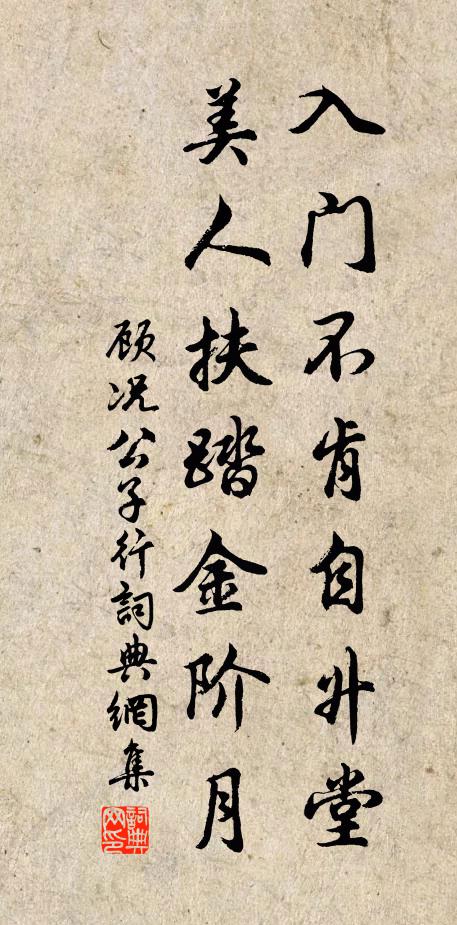 入门不肯自升堂
美人扶踏金阶月
顾况公子行詞典網集
詞典网印